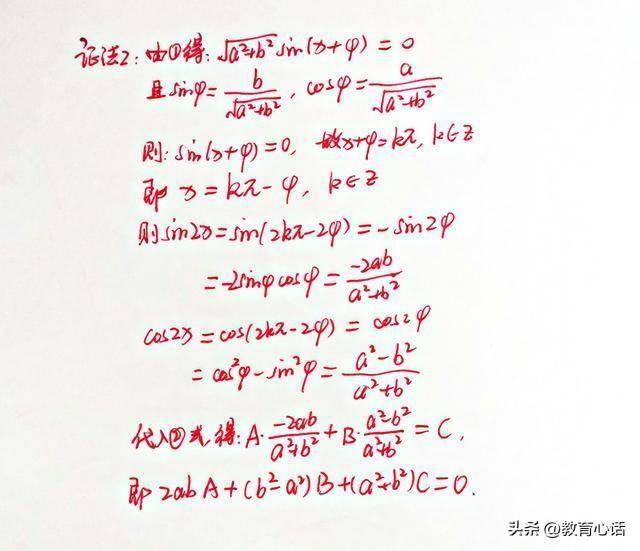 证法2: 由①得: √(a²+b²) sin(x+φ) = 0
且 sinφ = b/√(a²+b²), cosφ = a/√(a²+b²)
则: sin(x+φ) = 0, 故x+φ=kπ, k∈Z
即 x = kπ-φ, k∈Z
则sin2x = sin(2kπ-2φ) = -sin2φ
= -2sinφcosφ = -2ab/(a²+b²)
cos2x = cos(2kπ-2φ) = cos2φ
= cos²φ-sin²φ = (a²-b²)/(a²+b²)
代入②式得: A·(-2ab)/(a²+b²) + B·(a²-b²)/(a²+b²) = C,
即 2abA+(b²-a²)B+(a²+b²)C=0.
头条 @教育心话